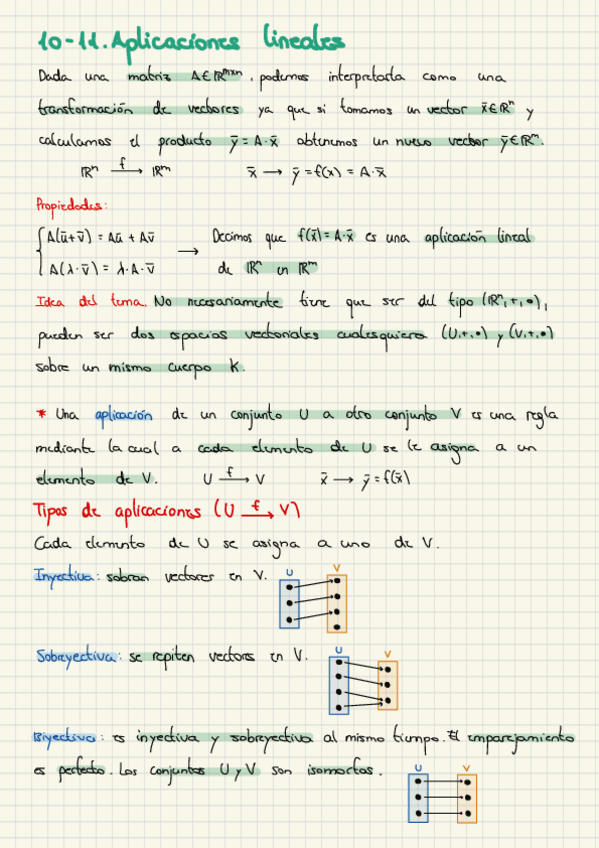 10-11. Aplicaciones lineales
Dada una matriz A∈ℝᵐˣⁿ, podemos interpretarla como una
transformación de vectores ya que si tomamos un vector x̄∈ℝⁿ y
calculamos el producto ȳ = A·x̄ obtenemos un nuevo vector ȳ∈ℝᵐ.
ℝⁿ —f→ ℝᵐ x̄ → ȳ = f(x) = A·x̄
Propiedades:
{A(ū+v̄) = Aū + Av̄ → Decimos que f(x̄) = A·x̄ es una aplicación lineal
{A(λ·v̄) = λ·A·v̄ de ℝⁿ en ℝᵐ
Idea del tema. No necesariamente tiene que ser del tipo (ℝⁿ,+,•),
pueden ser dos espacios vectoriales cualesquiera (U,+,•) y (V,+,•)
sobre un mismo cuerpo K.
* Una aplicación de un conjunto U a otro conjunto V es una regla
mediante la cual a cada elemento de U se le asigna a un
elemento de V. U —f→ V x̄ → ȳ = f(x̄)
Tipos de aplicaciones (U —f→ V)
Cada elemento de U se asigna a uno de V.
Inyectiva: sobran vectores en V.
U V
Sobreyectiva: se repiten vectores en V.
U V
Biyectiva: es inyectiva y sobreyectiva al mismo tiempo. El emparejamiento
es perfecto. Los conjuntos U y V son isomorfos.
U V